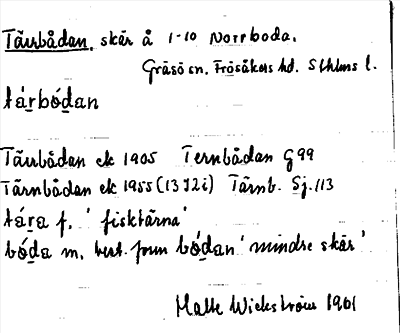 Tärrbådan, skär å 1-10 Norrboda,
Gräsö sn, Frösåkers hd. Sthlms l.
tá̱rbó̱dan
Tärrbådan ek 1905 Ternbådan G 99
Tärnbådan ek 1955 (13 I 2 i) Tärnb. Sj. 113
tá̱ra f. 'fisktärna'
bó̱da m. best. form bó̱dan 'mindre skär'
Malte Wickström 1961